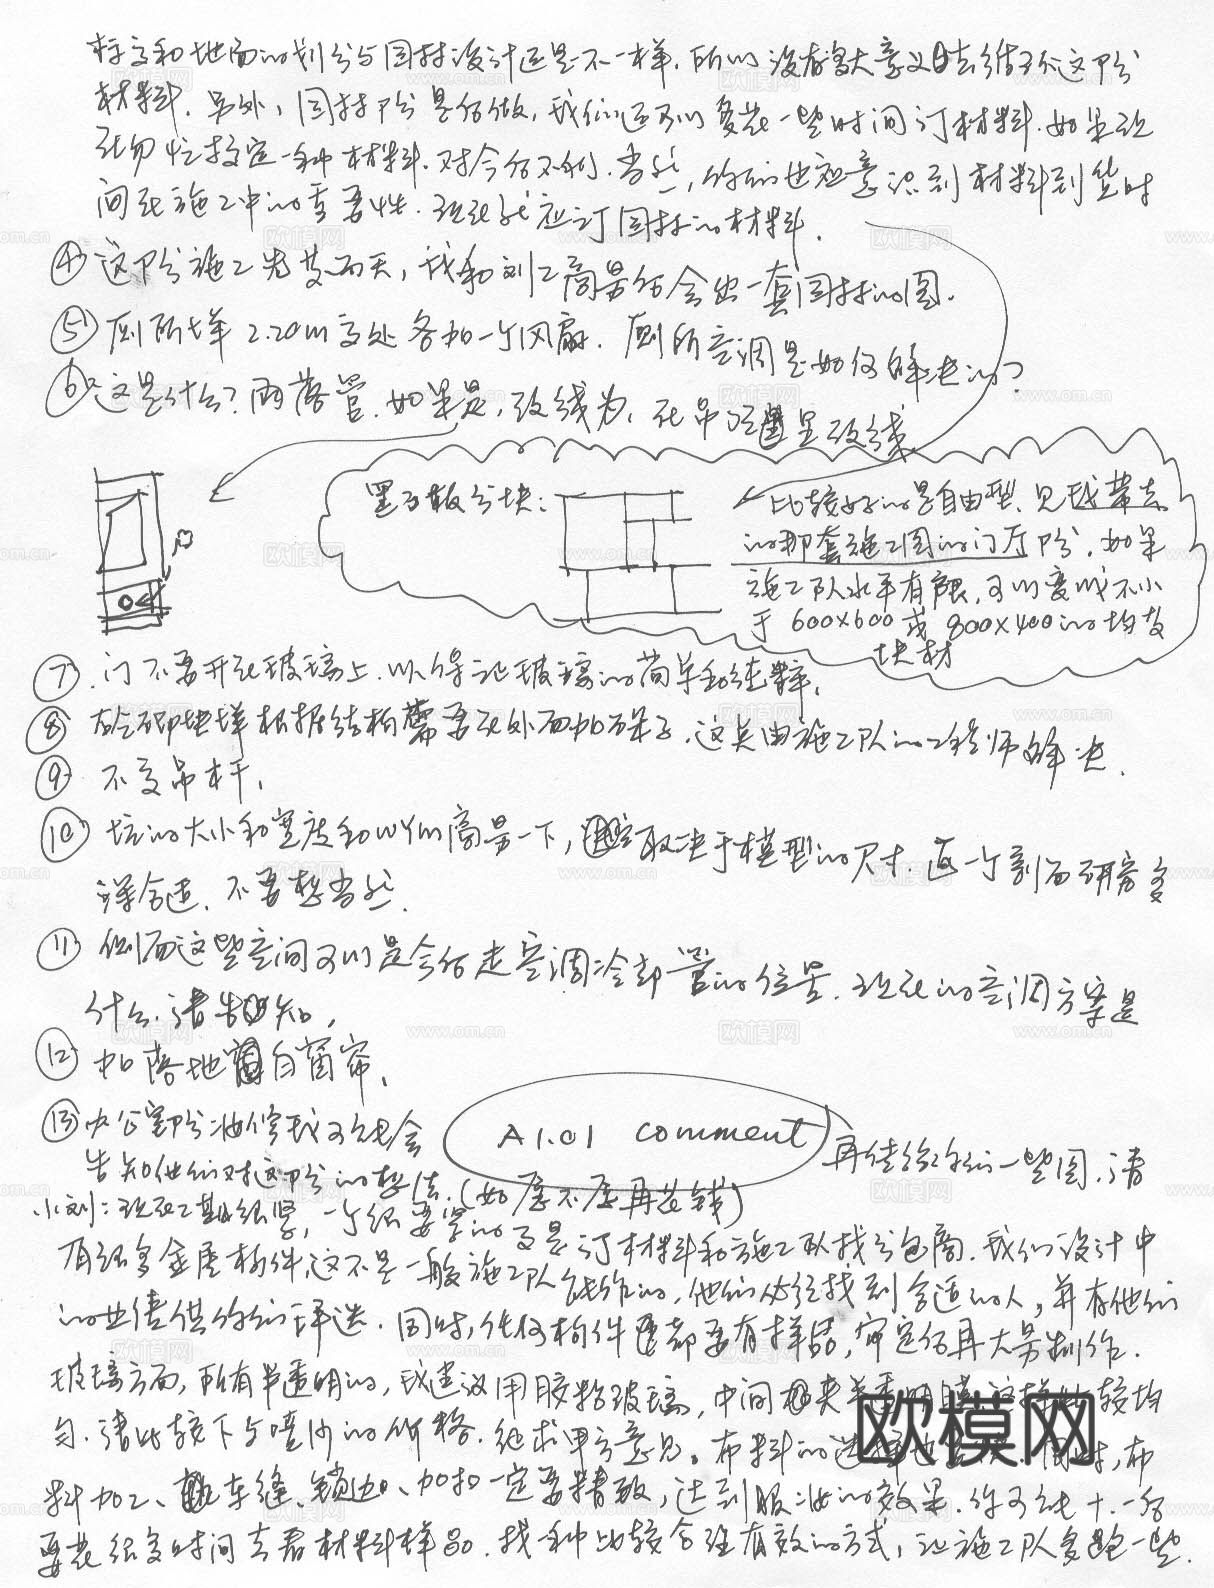 标高和地面的划分与园林设计还是不一样.所以没有多大意义去结这部分
材料.另外,园林部分是后做,我们还可以多花一些时间订材料.如果现
在匆忙投定一种材料.对今后不利.当然,你们也注意识到材料到货时
间在施工中的重要性.现在就应订园林的材料.
④ 这部分施工先等两天,我和刘工商量后会出一套园林的图.
⑤ 厕所墙 2.20m高处各加一个风扇.厕所空调是如何解决的?
⑥ 这是什么?雨落管.如果是,改线为,在吊顶里改线
黑石板分块:
比较好的是自由型.见我带去
的那套施工图的门厅部分.如果
施工队水平有限,可以变成不小
于 600×600 或 800×400 的均等
块材
⑦.门不要开在玻璃上.以保证玻璃的简单和纯粹.
⑧ 砌块墙根据结构需要在外面加架子.这点由施工队的工程师解决.
⑨ 不要吊杆.
⑩ 坑的大小和宽度和WYM商量一下,取决于模型的尺寸.画一个剖面研究多
深合适.不要想当然.
⑪ 侧面这些空间可以是今后走空调冷却管的位置.现在的空调方案是
什么.请告知.
⑫ 加落地白窗帘.
⑬ 办公室部分装修我可能会
A1.01 comment
再传给你们一些图.请
告知他们对这部分的想法.(如愿不愿再花钱)
小刘:现在工期很紧,一个很要紧的事是订材料和施工队找分包商.我们设计中
有很多金属构件,这不是一般施工队能作的.他们必须找到合适的人,并有他们
的业绩供你们评选.同时,任何构件都要有样品,审定后再大量制作.
玻璃方面,所有半透明的,我建议用胶粘玻璃,中间夹半透明膜,这样比较均
匀.请比较下与喷沙的价格.征求甲方意见。布料的选择也,布
料加工、车缝、锁边、加扣一定要精致,达到服装的效果.你可能十一后
要花很多时间去看材料样品.找一种比较合理有效的方式,让施工队多跑一些.
欧模网
www.om.cn